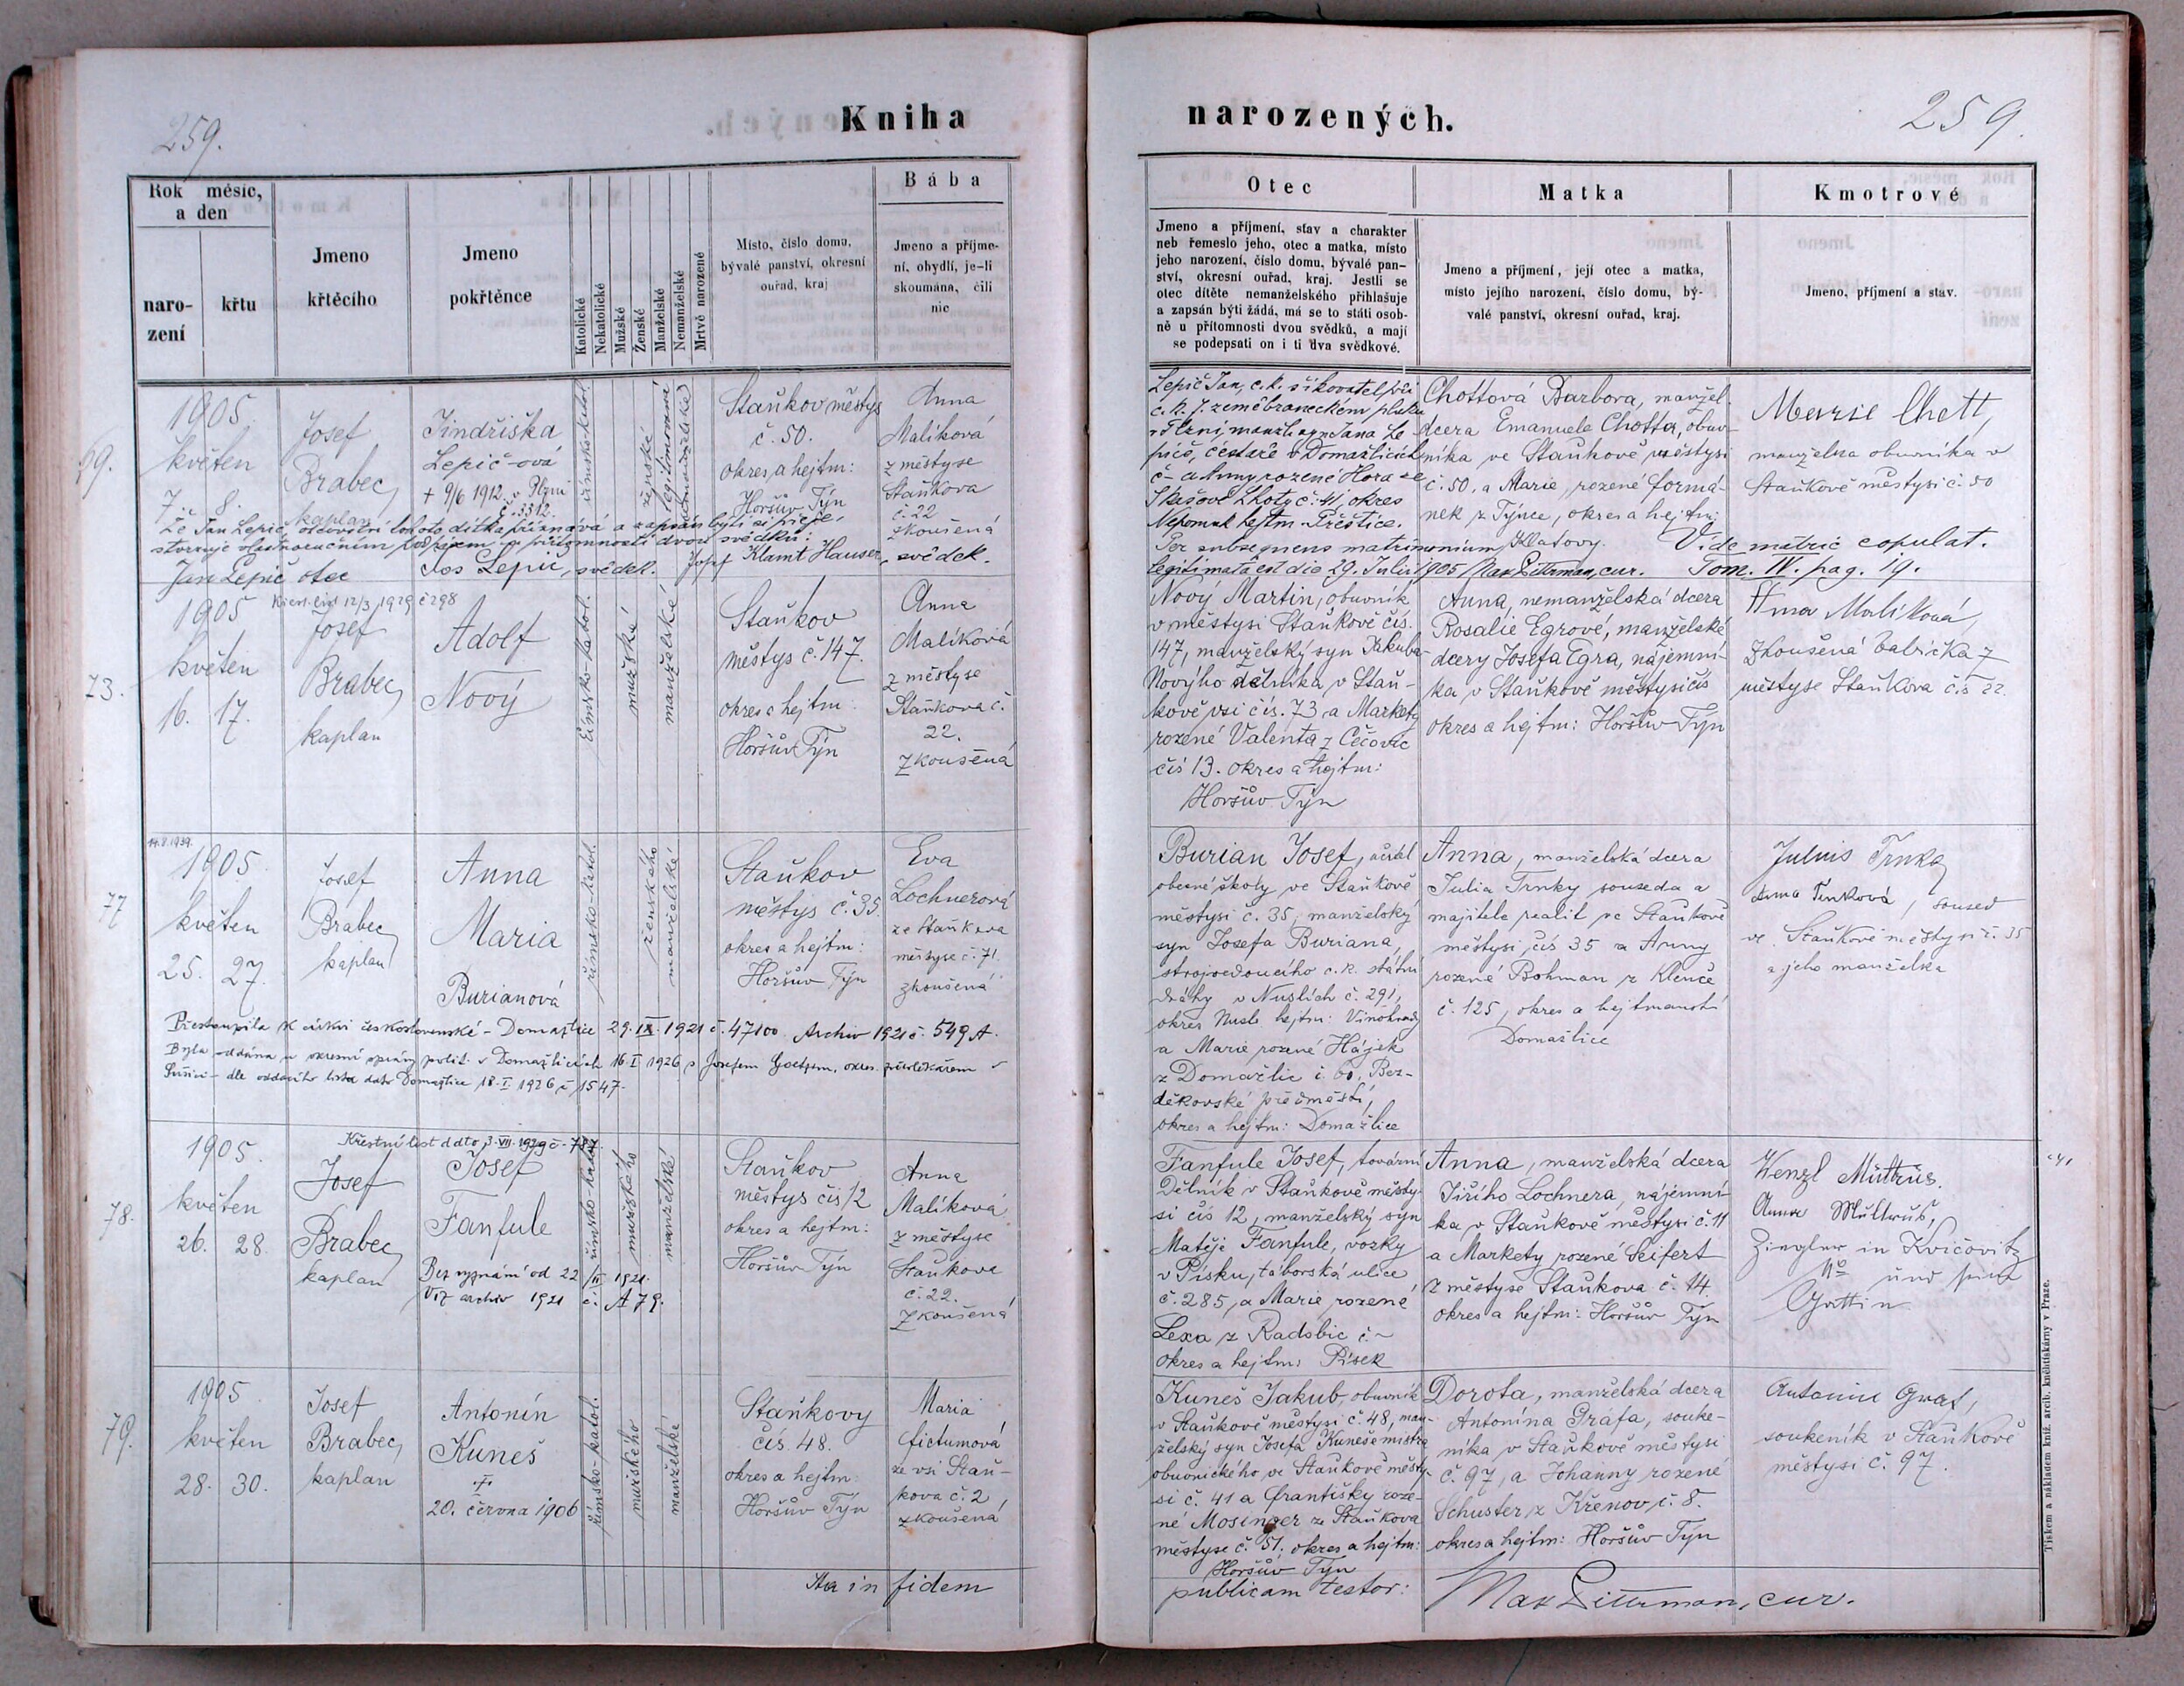 259.
Kniha
narozených.
259.
Rok měsíc,
a den
naro-
zení
křtu
Jmeno
křtěcího
Jmeno
pokřtěnce
Katolické
Nekatolické
Mužské
Ženské
Manželské
Nemanželské
Mrtvě narozené
Místo, číslo domu,
bývalé panství, okresní
ouřad, kraj
Bába
Jmeno a příjme-
ní, obydlí, je-li
skoumána, čili
nic
Otec
Jmeno a příjmení, stav a charakter
neb řemeslo jeho, otec a matka, místo
jeho narození, číslo domu, bývalé pan-
ství, okresní ouřad, kraj. Jestli se
otec dítěte nemanželského přihlašuje
a zapsán býti žádá, má se to státi osob-
ně u přítomnosti dvou svědků, a mají
se podepsati on i ti dva svědkové.
Matka
Jmeno a příjmení, její otec a matka,
místo jejího narození, číslo domu, bý-
valé panství, okresní ouřad, kraj.
Kmotrové
Jmeno, příjmení a stav.
1905.
květen
7. 8.
Josef
Brabec,
kaplan
Jindřiška
Lepič-ová
+ 9/6 1912 v Plzni
č. 3312.
římsko-katol.
ženské
legitimovaná
nemanželské
Staňkov městys
č. 50.
okres a hejtm:
Horšův Týn
Anna
Malíková
z městyse
Staňkova
č. 22
zkoušená
Že Jan Lepič otcovství tohoto dítka přiznává a zapsán býti si přeje,
stvrzuje vlastnoručním podpisem u přítomnosti dvou svědků:
Jan Lepič otec
Jos Lepič, svědek.
Josef Klamt Hauser, svědek.
Lepič Jan, c. k. šikovatel při
c. k. 7. zeměbraneckém pluku
v Plzni, manžel. syn Jana Le-
piče, cestáře v Domažlicích
č - a Anny rozené Hora ze
Skašové Lhoty č. 41, okres
Nepomuk hejtm. Přeštice.
Per subsequens matrimonium
legitimata est die 29. Julii 1905 Max Dittrman, cur.
Chottová Barbora, manžel.
dcera Emanuele Chotta, obuv-
níka ve Staňkově městysi
č. 50, a Marie, rozené Formá-
nek z Týnce, okres a hejtm:
Klatovy.
Marie Chott,
manželka obuvníka v
Staňkově městysi č. 50
Vide matric copulat.
Tom. IV. pag. 19.
73.
1905
květen
16. 17.
Křest. list 12/3 1929 č 298
Josef
Brabec,
kaplan
Adolf
Nový
římsko-katol.
mužské
manželské
Staňkov
městys č. 147.
okres a hejtm:
Horšův Týn
Anna
Malíková
z městyse
Staňkova č.
22.
zkoušená
Nový Martin, obuvník
v městysi Staňkově čís.
147, manželský syn Jakuba
Nového dělníka, v Staň-
kově vsi čís. 73 a Markety
rozené Valenta z Čečovic
čís 13. okres a hejtm:
Horšův Týn
Anna, nemanželská dcera
Rosalie Egrové, manželské
dcery Josefa Egra, nájemní-
ka v Staňkově městysi čís
okres a hejtm: Horšův Týn
Anna Malíková,
zkoušená babička z
městyse Staňkova čís 22.
77
1905.
květen
25. 27.
Josef
Brabec,
kaplan
Anna
Maria
Burianová
římsko-katol.
ženského
manželské
Staňkov
městys č. 35.
okres a hejtm:
Horšův Týn
Eva
Lochnerová
ze Staňkova
městyse č. 71.
zkoušená
Přestoupila k církvi československé - Domažlice 29. IX. 1921 č. 47100. Archiv 1921 č. 549 A.
Byla oddána u okresní správy polit. v Domažlicích 16. I 1926 s Josefem
Sušici - dle oddacího listu dato Domažlice 18. I. 1926 č 1547.
Burian Josef, učitel
obecné školy ve Staňkově
městysi č. 35, manželský
syn Josefa Buriana,
strojvedoucího c. k. státní
dráhy v Nuslích č. 291,
okres Nusle hejtm: Vinohrady
a Marie rozené Hájek
z Domažlic č. 60, Bez-
děkovské předměstí,
okres a hejtm: Domažlice
Anna, manželská dcera
Julia Trnky souseda a
majitele realit ve Staňkově
městysi, čís 35 a Anny
rozené Bohman z Klenče
č. 125, okres a hejtmanství
Domažlice
Julius Trnka
Anna Trnková, soused
ve Staňkově městysi č. 35
a jeho manželka
78.
1905.
květen
26. 28.
Křestní list ddto 3. VII. 1939 č.
Josef
Brabec,
kaplan
Josef
Fanfule
Bez vyznání od 22/III 1921.
Viz archiv 1921 č. A 79.
římsko-katol.
mužského
manželské
Staňkov
městys čís 12
okres a hejtm:
Horšův Týn
Anna
Malíková
z městyse
Staňkova
č. 22.
zkoušená
Fanfule Josef, tovární
dělník v Staňkově městy-
si čís 12, manželský syn
Matěje Fanfule, vozky
v Písku, táborská ulice
č. 285, a Marie rozené
Lexa z Radobic č. ~
okres a hejtm: Písek
Anna, manželská dcera
Jiřího Lochnera, nájemní-
ka v Staňkově městysi č. 11
a Markety rozené Seifert
z městyse Staňkova č. 14.
okres a hejtm: Horšův Týn
Wenzl Müttrüs.
Anna
in Kvíčovitz
No und seine
Gattin
79.
1905
květen
28. 30.
Josef
Brabec,
kaplan
Antonín
Kuneš
†
20. června 1906
římsko-katol.
mužského
manželské
Staňkovy
čís. 48.
okres a hejtm:
Horšův Týn
Maria
Fictumová
ze vsi Staň-
kova č. 2
zkoušená
Kuneš Jakub, obuvník
v Staňkově městysi č. 48, man-
želský syn Josefa Kuneše mistra
obuvnického ve Staňkově městy-
si č. 41 a Františky roze-
né Mosinger ze Staňkova
městyse č. 51. okres a hejtm:
Horšův Týn
Dorota, manželská dcera
Antonína Gráfa, souke-
níka v Staňkově městysi
č. 97, a Johanny rozené
Schuster, z Křenov, č. 8.
okres a hejtm: Horšův Týn
Antonín Graf,
soukeník v Staňkově
městysi č. 97.
Ita in fidem
publicam testor:
Max Dittrman, cur.
Tiskem a nákladem kníž. arcib. knihtiskárny v Praze.